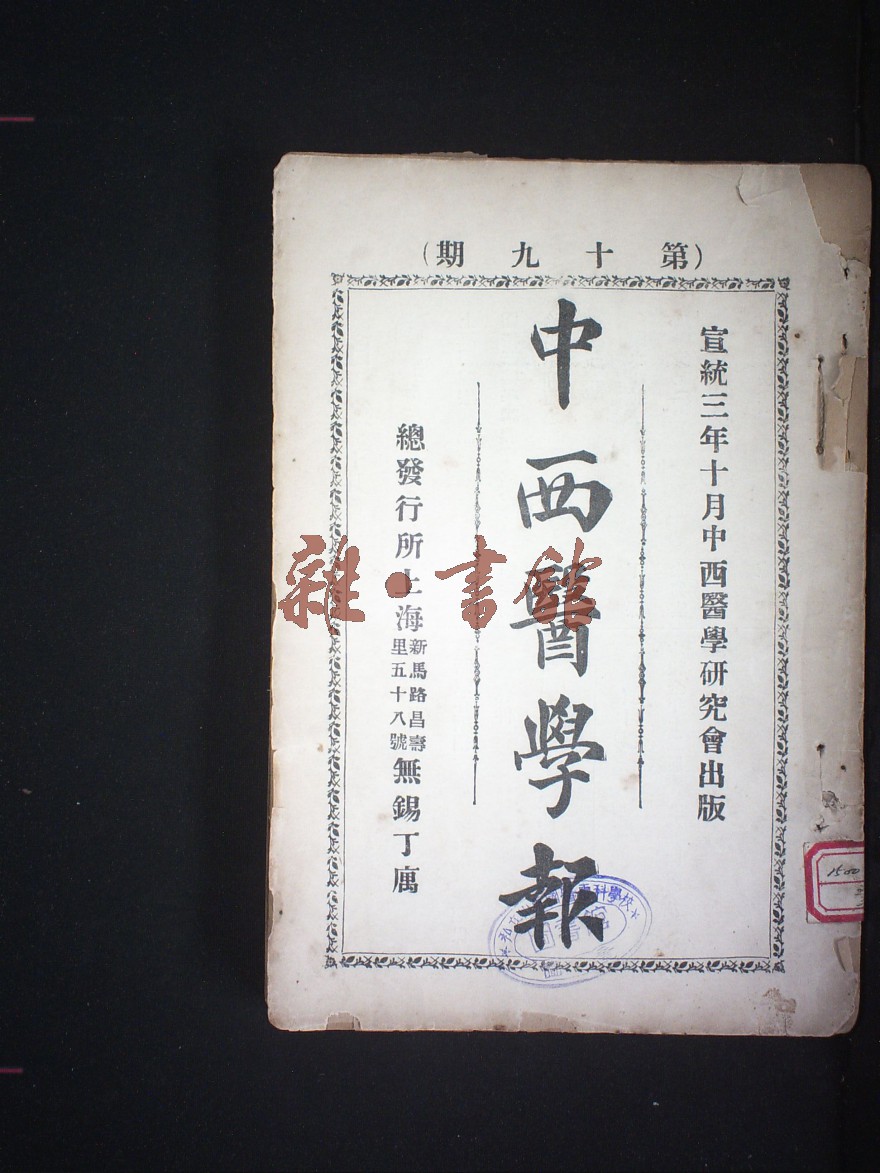 （第十九期）
宣統三年十月中西醫學研究會出版
中西醫學報
總發行所上海新馬路昌壽里五十八號無錫丁寓
雜·書館
科學校
1500